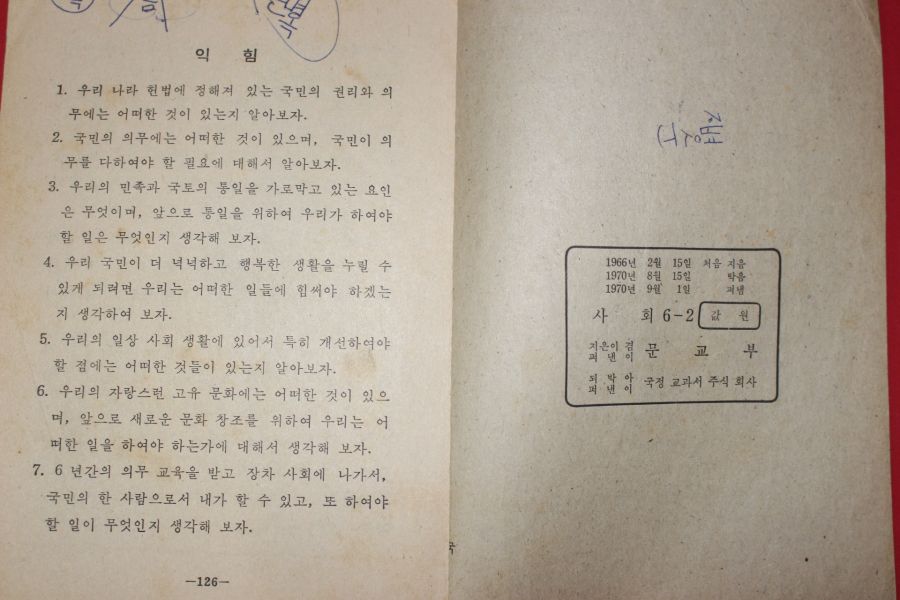 익 힘
1. 우리 나라 헌법에 정해져 있는 국민의 권리와 의
무에는 어떠한 것이 있는지 알아보자.
2. 국민의 의무에는 어떠한 것이 있으며, 국민이 의
무를 다하여야 할 필요에 대해서 알아보자.
3. 우리의 민족과 국토의 통일을 가로막고 있는 요인
은 무엇이며, 앞으로 통일을 위하여 우리가 하여야
할 일은 무엇인지 생각해 보자.
4. 우리 국민이 더 넉넉하고 행복한 생활을 누릴 수
있게 되려면 우리는 어떠한 일들에 힘써야 하겠는
지 생각하여 보자.
5. 우리의 일상 사회 생활에 있어서 특히 개선하여야
할 점에는 어떠한 것들이 있는지 알아보자.
6. 우리의 자랑스런 고유 문화에는 어떠한 것이 있으
며, 앞으로 새로운 문화 창조를 위하여 우리는 어
떠한 일을 하여야 하는가에 대해서 생각해 보자.
7. 6 년간의 의무 교육을 받고 장차 사회에 나가서,
국민의 한 사람으로서 내가 할 수 있고, 또 하여야
할 일이 무엇인지 생각해 보자.
—126—
1966년 2월 15일 처음 지음
1970년 8월 15일 박음
1970년 9월 1일 펴냄
사 회 6-2 값 원
지은이 겸
펴 낸 이 문 교 부
되 박 아
펴 낸 이 국정 교과서 주식 회사